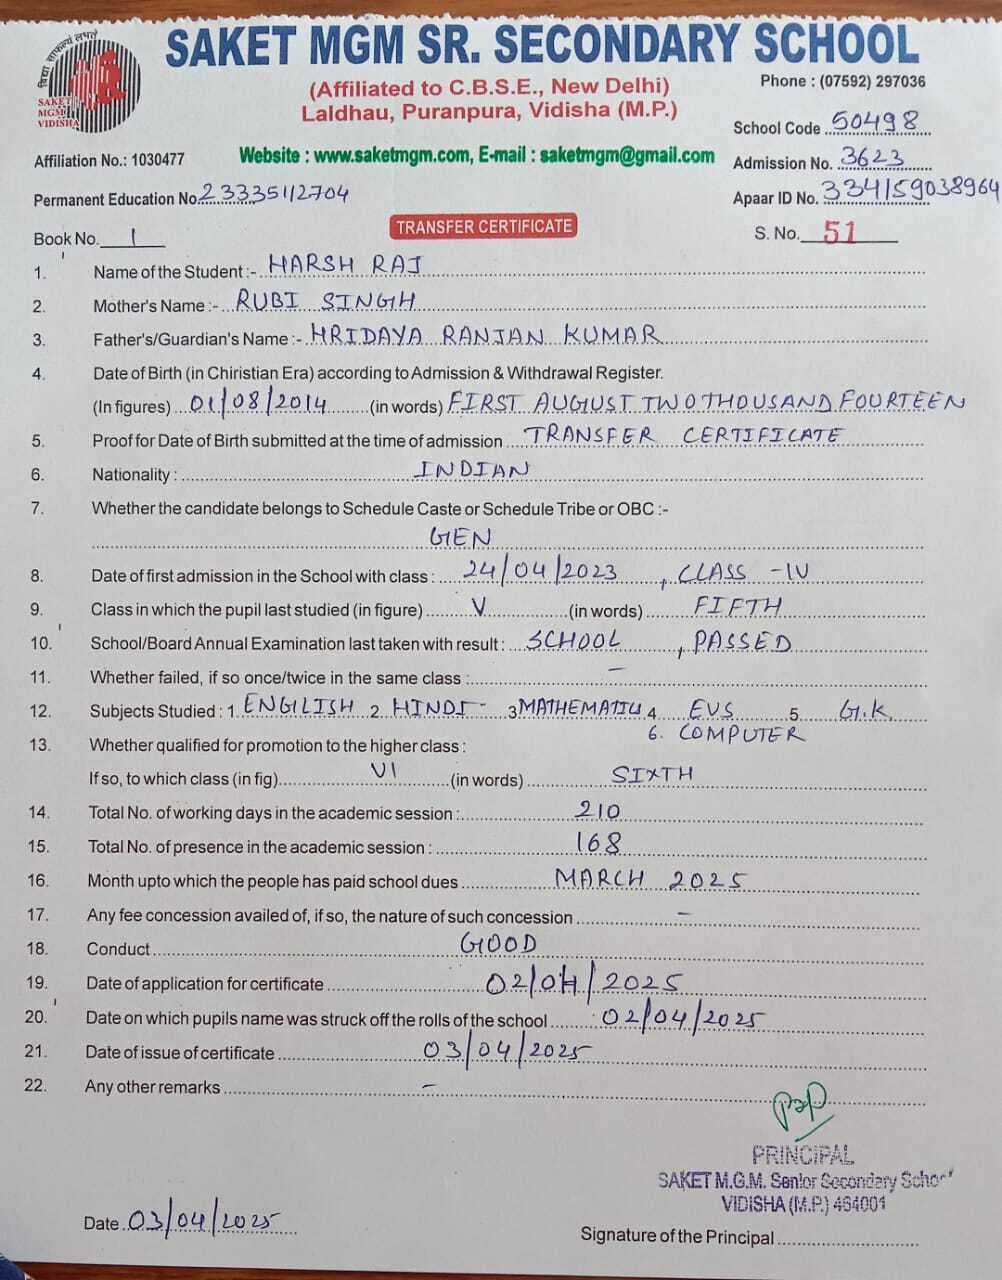 विद्या साफल्यं लभते
SAKET
MGM
VIDISHA
SAKET MGM SR. SECONDARY SCHOOL
(Affiliated to C.B.S.E., New Delhi)
Phone : (07592) 297036
Laldhau, Puranpura, Vidisha (M.P.)
School Code 50498
Affiliation No.: 1030477
Website : www.saketmgm.com, E-mail : saketmgm@gmail.com
Admission No. 3623
Permanent Education No. 23335112704
Apaar ID No. 334159038964
TRANSFER CERTIFICATE
Book No. 1
S. No. 51
1. Name of the Student :- HARSH RAJ
2. Mother's Name :- RUBI SINGH
3. Father's/Guardian's Name :- HRIDAYA RANJAN KUMAR
4. Date of Birth (in Chiristian Era) according to Admission & Withdrawal Register.
(In figures) 01/08/2014 (in words) FIRST AUGUST TWO THOUSAND FOURTEEN
5. Proof for Date of Birth submitted at the time of admission TRANSFER CERTIFICATE
6. Nationality : INDIAN
7. Whether the candidate belongs to Schedule Caste or Schedule Tribe or OBC :-
GEN
8. Date of first admission in the School with class : 24/04/2023, CLASS - IV
9. Class in which the pupil last studied (in figure) V (in words) FIFTH
10. School/Board Annual Examination last taken with result : SCHOOL, PASSED
11. Whether failed, if so once/twice in the same class : -
12. Subjects Studied : 1 ENGILISH 2 HINDI 3 MATHEMATICS 4 EVS 5. G.K.
6. COMPUTER
13. Whether qualified for promotion to the higher class :
If so, to which class (in fig) VI (in words) SIXTH
14. Total No. of working days in the academic session : 210
15. Total No. of presence in the academic session : 168
16. Month upto which the people has paid school dues MARCH 2025
17. Any fee concession availed of, if so, the nature of such concession -
18. Conduct GOOD
19. Date of application for certificate 02/04/2025
20. Date on which pupils name was struck off the rolls of the school 02/04/2025
21. Date of issue of certificate 03/04/2025
22. Any other remarks -
PRINCIPAL
SAKET M.G.M. Senior Secondary School
VIDISHA (M.P.) 464001
Date 03/04/2025
Signature of the Principal